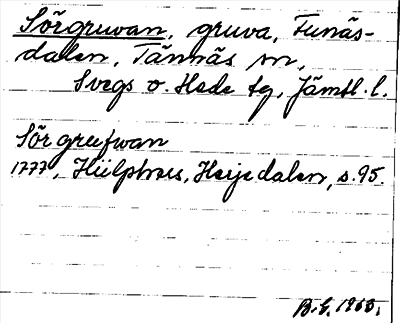 Sörgruvan, gruva, Funäs-
dalen, Tännäs sn,
Svegs o. Hede tg, Jämtl. l.
Sör grufwan
1777, Hülphers, Herjedalen, s. 95.
B.E. 1960.